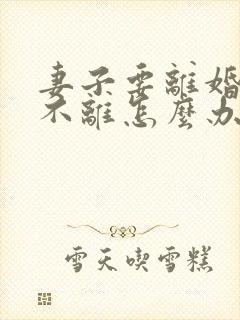 妻子要離婚
不離怎麼办
雪天喫雪糕